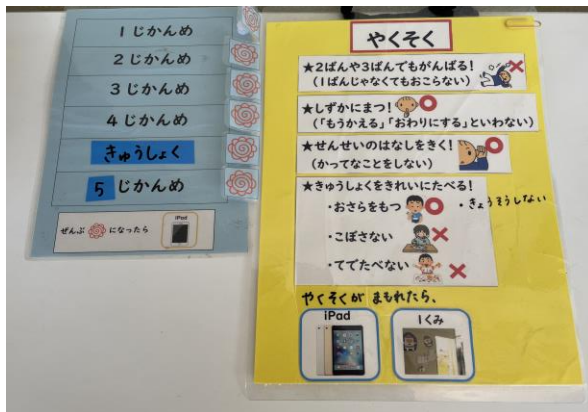 1じかんめ
2じかんめ
3じかんめ
4じかんめ
きゅうしょく
5じかんめ
ぜんぶ になったら
iPad
やくそく
★2ばんや3ばんでもがんばる!
(1ばんじゃなくてもおこらない)
★しずかにまつ!
(「もうかえる」「おわりにする」といわない)
★せんせいのはなしをきく!
(かってなことをしない)
★きゅうしょくをきれいにたべる!
・おさらをもつ ・きょうそうしない
・こぼさない
・てでたべない
やくそくが まもれたら、
iPad
1くみ